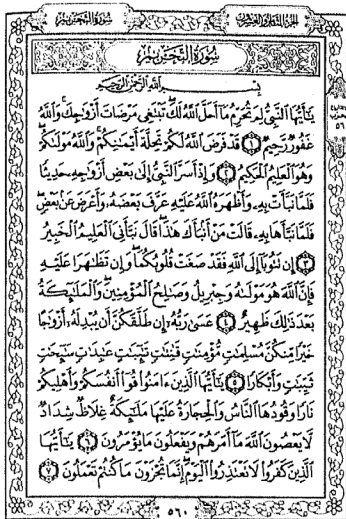 سورة التحريم
الجزء الثامن والعشرون
سورة التحريم
بسم الله الرحمن الرحيم
يَٰٓأَيُّهَا ٱلنَّبِيُّ لِمَ تُحَرِّمُ مَآ أَحَلَّ ٱللَّهُ لَكَۖ تَبْتَغِى مَرْضَاتَ أَزْوَٰجِكَۚ وَٱللَّهُ
غَفُورٌ رَّحِيمٌ ١ قَدْ فَرَضَ ٱللَّهُ لَكُمْ تَحِلَّةَ أَيْمَٰنِكُمْۚ وَٱللَّهُ مَوْلَىٰكُمْۖ
وَهُوَ ٱلْعَلِيمُ ٱلْحَكِيمُ ٢ وَإِذْ أَسَرَّ ٱلنَّبِيُّ إِلَىٰ بَعْضِ أَزْوَٰجِهِۦ حَدِيثًا
فَلَمَّا نَبَّأَتْ بِهِۦ وَأَظْهَرَهُ ٱللَّهُ عَلَيْهِ عَرَّفَ بَعْضَهُۥ وَأَعْرَضَ عَنۢ بَعْضٍۖ
فَلَمَّا نَبَّأَهَا بِهِۦ قَالَتْ مَنْ أَنۢبَأَكَ هَٰذَاۖ قَالَ نَبَّأَنِىَ ٱلْعَلِيمُ ٱلْخَبِيرُ
٣ إِن تَتُوبَآ إِلَى ٱللَّهِ فَقَدْ صَغَتْ قُلُوبُكُمَاۖ وَإِن تَظَٰهَرَا عَلَيْهِ
فَإِنَّ ٱللَّهَ هُوَ مَوْلَىٰهُ وَجِبْرِيلُ وَصَٰلِحُ ٱلْمُؤْمِنِينَۖ وَٱلْمَلَٰٓئِكَةُ
بَعْدَ ذَٰلِكَ ظَهِيرٌ ٤ عَسَىٰ رَبُّهُۥٓ إِن طَلَّقَكُنَّ أَن يُبْدِلَهُۥٓ أَزْوَٰجًا
خَيْرًا مِّنكُنَّ مُسْلِمَٰتٍ مُّؤْمِنَٰتٍ قَٰنِتَٰتٍ تَٰٓئِبَٰتٍ عَٰبِدَٰتٍ سَٰٓئِحَٰتٍ
ثَيِّبَٰتٍ وَأَبْكَارًا ٥ يَٰٓأَيُّهَا ٱلَّذِينَ ءَامَنُوا۟ قُوٓا۟ أَنفُسَكُمْ وَأَهْلِيكُمْ
نَارًا وَقُودُهَا ٱلنَّاسُ وَٱلْحِجَارَةُ عَلَيْهَا مَلَٰٓئِكَةٌ غِلَاظٌ شِدَادٌ
لَّا يَعْصُونَ ٱللَّهَ مَآ أَمَرَهُمْ وَيَفْعَلُونَ مَا يُؤْمَرُونَ ٦ يَٰٓأَيُّهَا
ٱلَّذِينَ كَفَرُوا۟ لَا تَعْتَذِرُوا۟ ٱلْيَوْمَۖ إِنَّمَا تُجْزَوْنَ مَا كُنتُمْ تَعْمَلُونَ ٧
٥٦٠